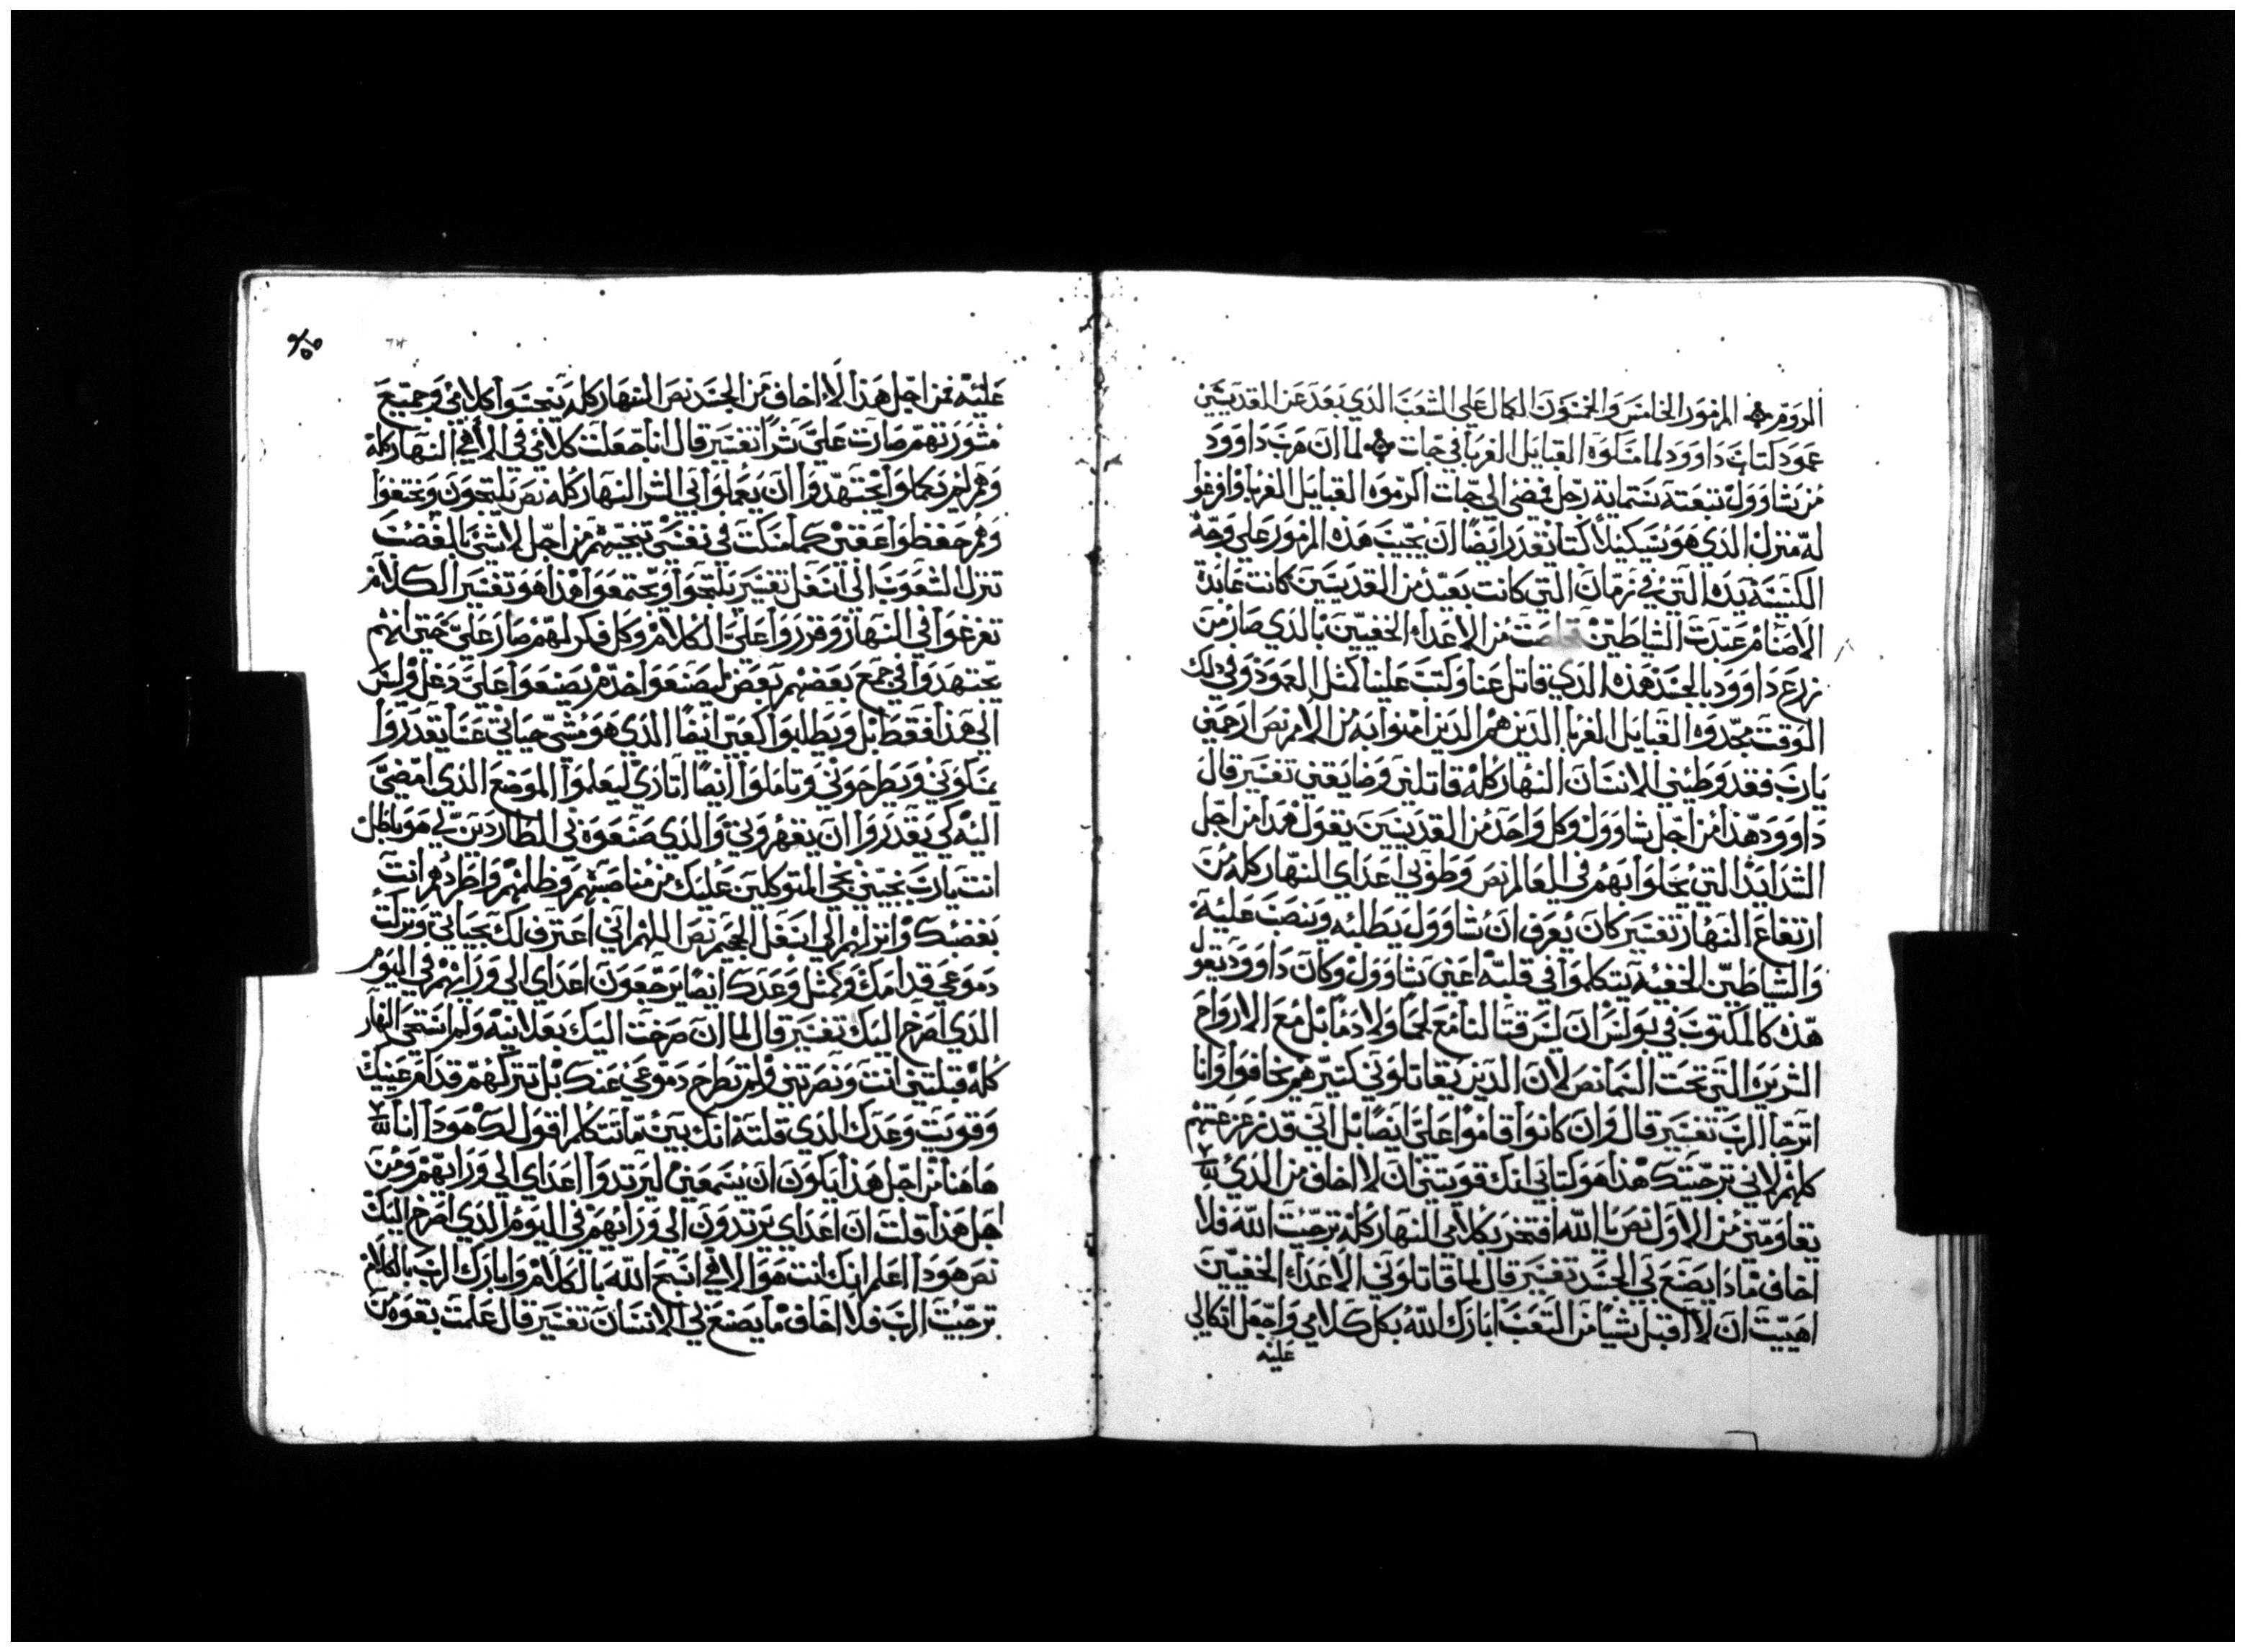 الروم ۞ المزمور الخامس والخمسون الكمال علي الشعب الذي بعد عن القديسين
عمود كتاب داوود لما مسكوه القبايل الغربا في جات ۞ لما ان هرب داوود
من شاوول تبعته ستماية رجل فمضي الي جات اكرموه القبايل الغربا واوفوا
له منزل الذي هو سيكيلا كنا نقدر ايضا ان نجيب هذه المزمور علي وجه
الكنيسه التي في زمان التي كانت بعيده من القديسين كانت عابدة
الاصنام عبدت الشياطين خلصت من الاعداء الخفيين بالذي صار من
زرع داوود بالجسد هذه الذي قاتل عنا وكتب علينا كمثل العمود وفي ذلك
الوقت مجدوه القبايل الغربا الذين هم الذين امنوا به من الامم نص ارحمني
يارب فقد وطيني الانسان النهار كله قاتلني وضايقني تفسير قال
داوود هذا من اجل شاوول وكل واحد من القديسين يقول هذا من اجل
الشدايد التي يحلوا بهم في العالم نص وطوني اعداي النهار كله من
ارتفاع النهار تفسير كان يعرف ان شاوول يطلبه وينصب عليه
والشياطين الخفيه يتكلموا في قلبه اعني شاوول وكان داوود يقول
هذه كالمكتوب في بولس ان ليس قتالنا مع لحما ولا دما بل مع الارواح
الشريره التي تحت السما نص لان الذين يقاتلوني كثير هم يخافوا وانا
اترجا الرب تفسير قال وان كانوا قاموا علي ايضا بل اني قد زعزعتهم
كلهم لاني ترجيتك هذا هو كتابي انك قويتني ان لا اخاف من الذي
يقاومني من الاول نص بالله افتخر بكلامي النهار كله ترجيت الله فلا
اخاف ماذا يصنع بي الجسد تفسير قال لما قاتلوني الاعداء الخفيين
اهيت ان لا اقبل شيا من التعب ابارك الله بكل كلامي واجعل اتكالي
عليه
عليه فمن اجل هذا لا اخاف من الجسد نص النهار كله ينجسوا كلامي وجميع
مشورتهم صارت علي شرا تفسير قال انا جعلت كلامي في الاهي النهار كله
وهم لم يعملوا يجتهدوا ان يعملوا بي الشر النهار كله نص يلتجون ويختفوا
وهم حفظوا عقبي كما مسكت في نفسي تنجيهم من اجل لا شي بالغضب
تنزل الشعوب الي اسفل تفسير يلتجوا ويجتمعوا هذا هو تفسير الكلام
تفرغوا في النهار وقرروا علي الكلام وكل فكر لهم صار علي حتي انهم
يجتهدوا في جمع بعضهم بعض ليصنعوا احدهم يصنعوا علي دغل وليس
الي هذا فقط بل ويطلبوا كعبي ايضا الذي هو مشي حياتي عسا يقدروا
يمسكوني ويطرحوني وتاملوا ايضا اثاري ليعلموا الموضع الذي امضي
اليه كي يقدروا ان يقهروني والذي صنعوه بي الطاردين لي هو باطل
انت يارب نجيني نجي المتوكلين عليك من مناصبتهم وظلمهم واطردهم انت
بغضبك وانزلهم الي اسفل الجحيم نص اللهم اني اعترف لك بحياتي وتركت
دموعي قدامك وكمثل وعدك ايضا يرجعون اعداي الي ورايهم في اليوم
الذي اصرخ اليك تفسير قال لما ان صرخت اليك بعلانيه ولم استحي النهار
كله قبلتني انت ونصرتني ولم تطرح دموعي عنك بل تتركهم قدام عينيك
وقويت وعدك لذي قلته انك بين ما تتكلم اقول لك هوذا انا
هاهنا من اجل هذا يكون ان يسمعني ليرتدوا اعداي الي ورايهم ومن
اجل هذا قلت ان اعداي يرتدون الي ورايهم في اليوم الذي اصرخ اليك
نص هوذا اعلم انك انت هو الاهي اسبح الله بالكلام وابارك الرب بالكلام
ترجيت الرب فلا اخاف ما يصنع بي الانسان تفسير قال علمت بقوه من